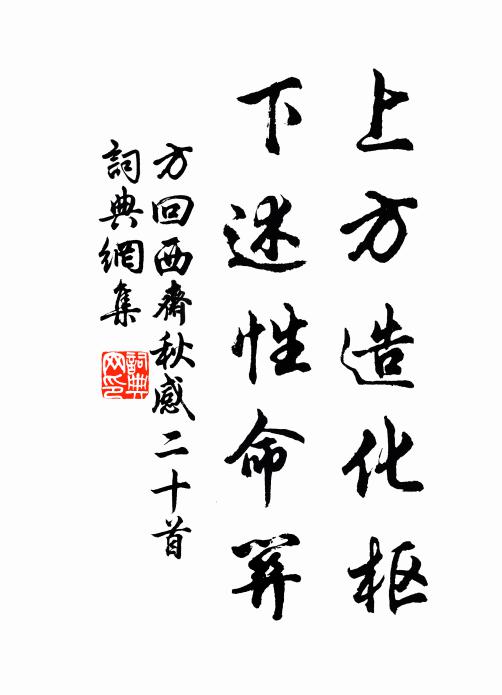 上方造化枢
下述性命
方回西齋秋感二十首
詞典網集
詞典网印